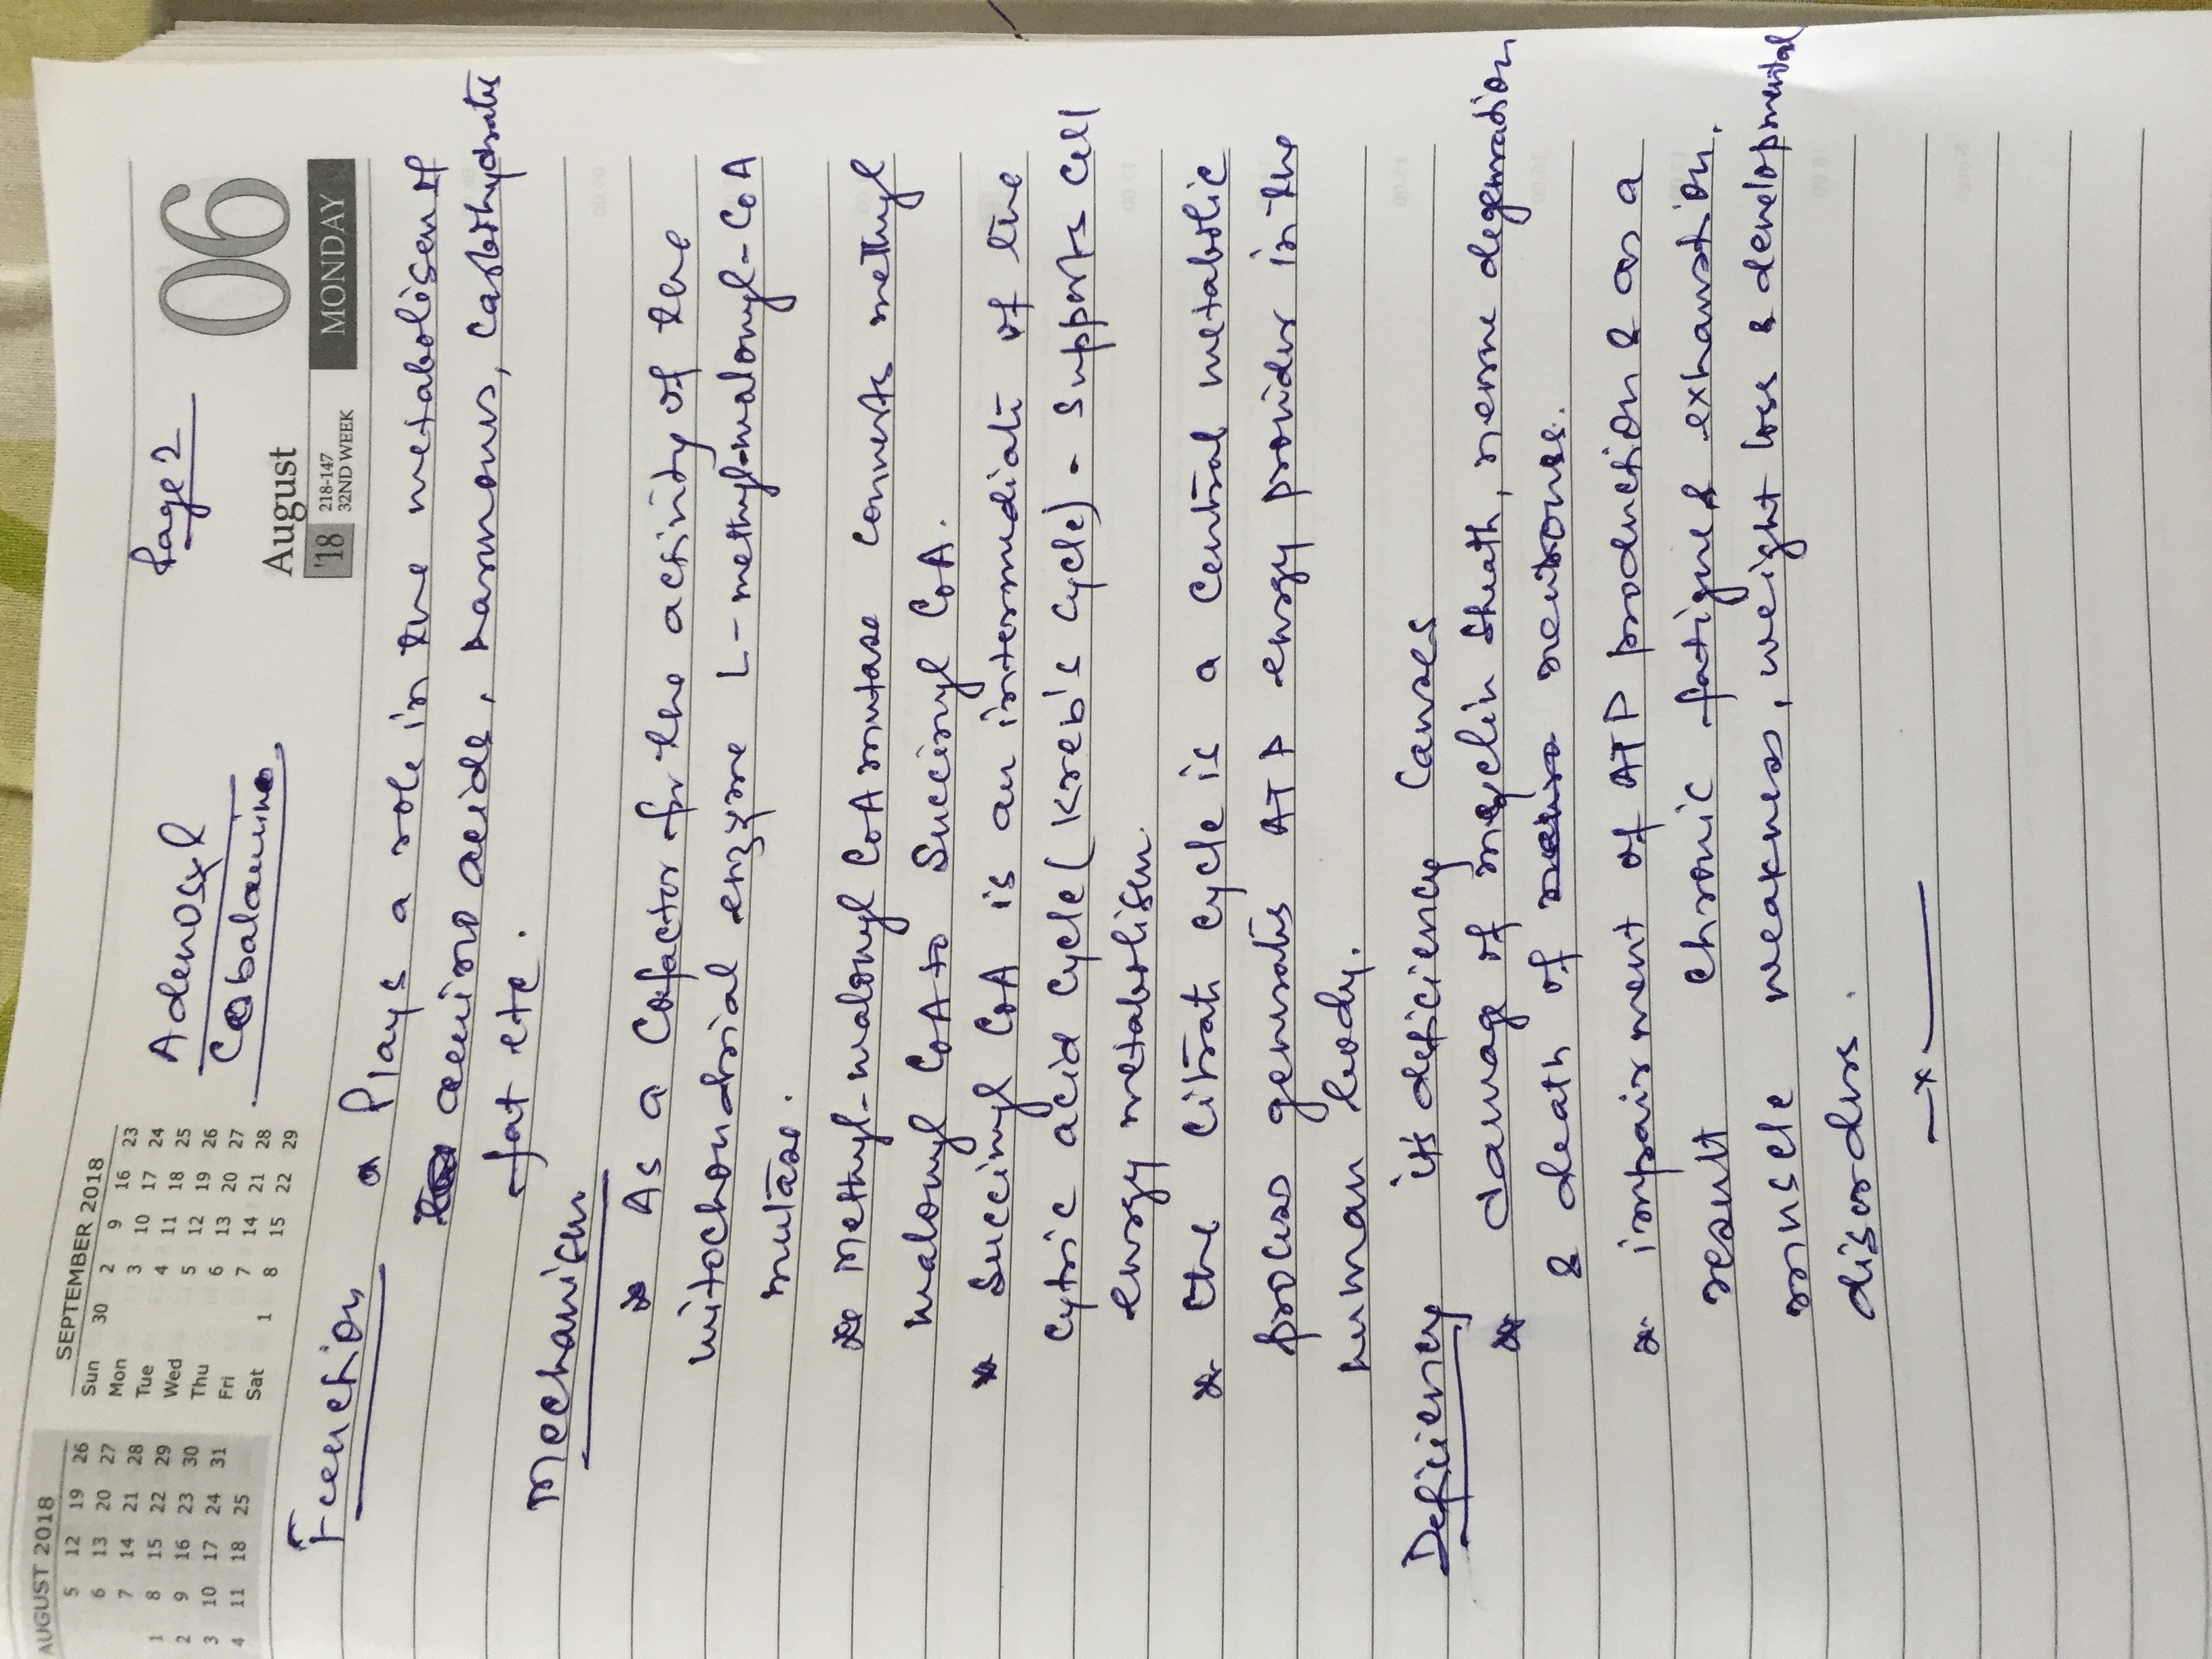 Page 2
AUGUST 2018
5 12 19 26
6 13 20 27
7 14 21 28
1 8 15 22 29
2 9 16 23 30
3 10 17 24 31
4 11 18 25
SEPTEMBER 2018
Sun 30 2 9 16 23
Mon 3 10 17 24
Tue 4 11 18 25
Wed 5 12 19 26
Thu 6 13 20 27
Fri 7 14 21 28
Sat 1 8 15 22 29
Adenosyl
Cobalamine
August
'18
218-147
32ND WEEK
06
MONDAY
Function
* Plays a role in the metabolism of
amino acids, harmones, carbohydrates
fat etc.
Mechanism
* As a Cofactor for the activity of the
mitochondrial enzyme L-methyl-malonyl-CoA
mutase.
* Methyl-malonyl CoA mutase converts methyl
malonyl CoA to Succinyl CoA.
* Succinyl CoA is an intermediate of the
cytric acid cycle (Kreb's cycle) - supports cell
energy metabolism
* The citrate cycle is a central metabolic
process generates ATP energy provider in the
human body.
Deficiency its deficiency causes
* damage of myelin sheath, nerve degeneration
& death of neurones.
* impairment of ATP production & as a
result chronic fatigue & exhaustion.
muscle weakness, weight loss & developmental
disorders.
—x—